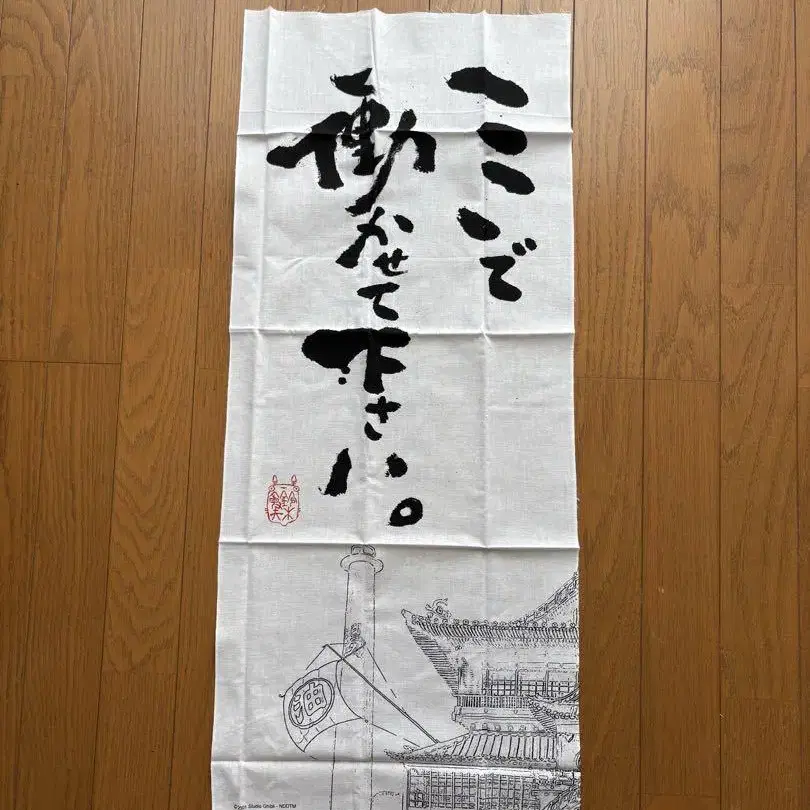 ここで
働かせて下さい。
油
©2001 Studio Ghibli・NDDTM